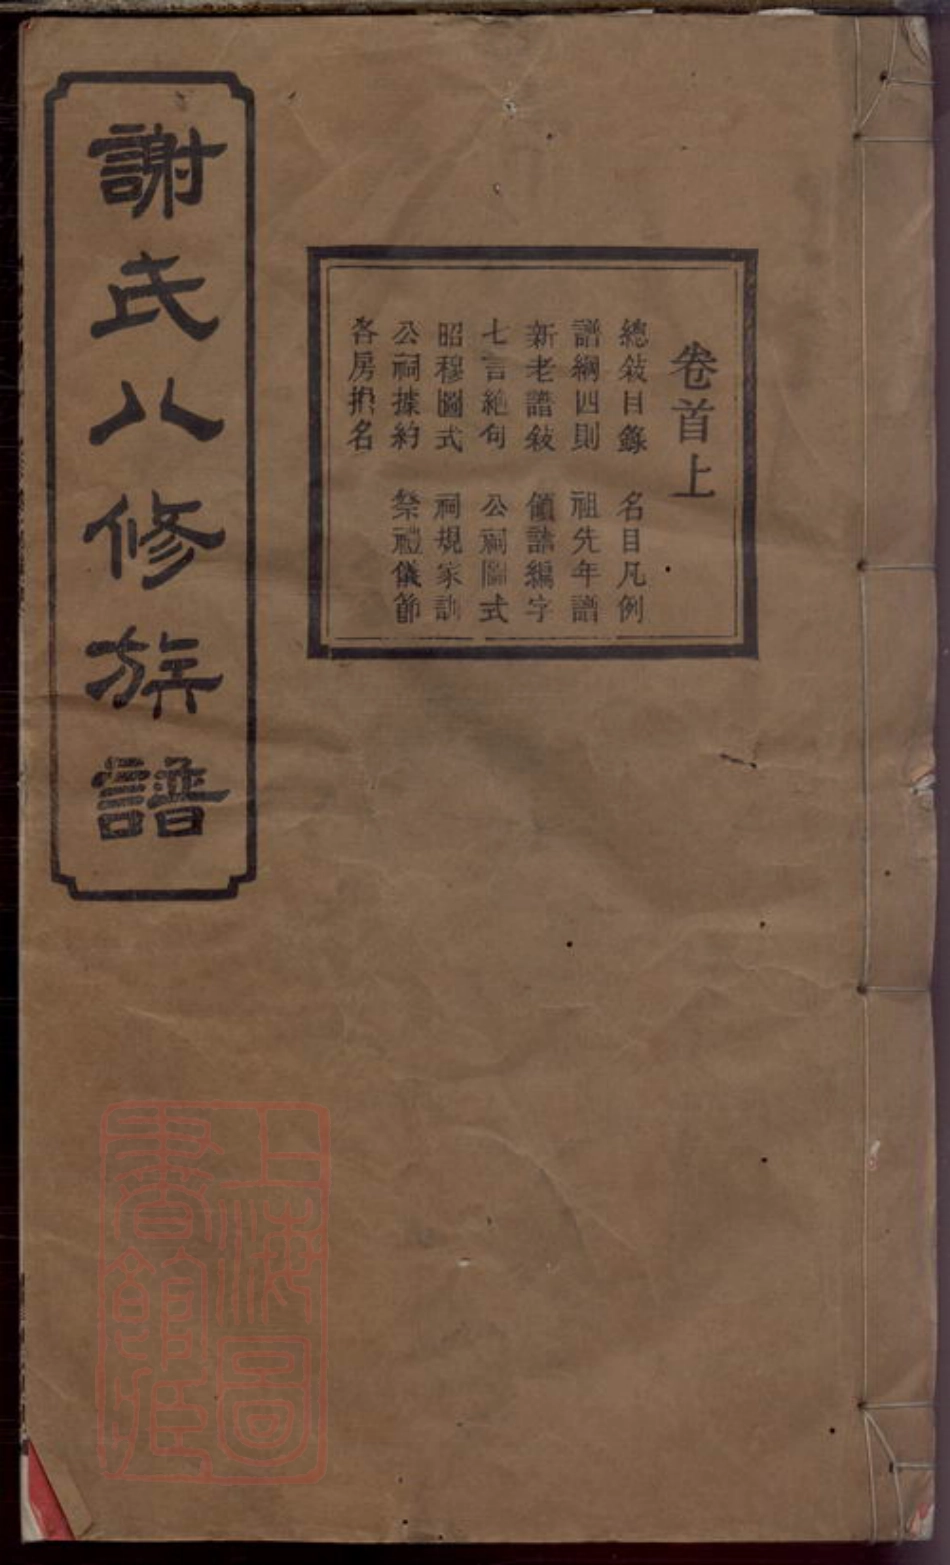 謝氏八修族譜
卷首上
總敍目錄 名目凡例
譜綱四則 祖先年譜
新老譜敍 領譜編字
七言絶句 公祠圖式
昭穆圖式 祠規家訓
公祠據約 祭禮儀節
各房捐名
上海圖
書館藏